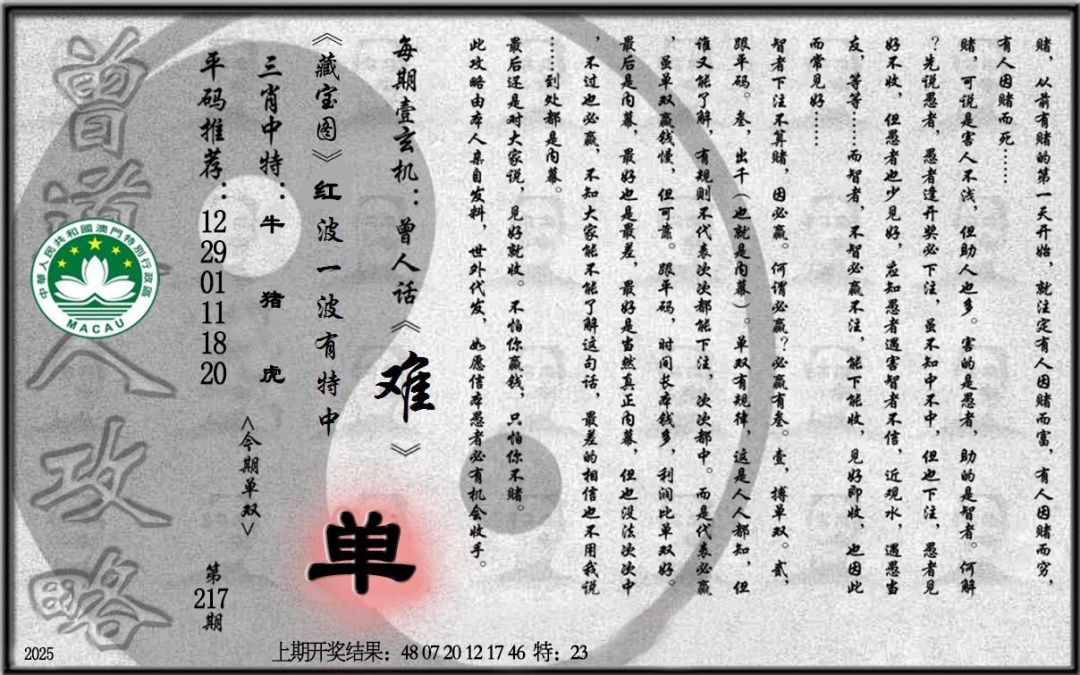 赌，从前有赌的第一天开始，就注定有人因赌而富，有人因赌而穷，
有人因赌而死……
赌，可说是害人不浅，但助人也多。害的是愚者，助的是智者。何解
？先说愚者，愚者逢开奖必下注，虽不知中不中，但也下注，愚者见
好不收，但愚者也少见好，应知愚者遇害智者不信，近观水，遇愚当
友，等等……而智者，不智必赢不注，能下能收，见好即收，也因此
而常见好……
智者下注不算赌，因必赢。何谓必赢？必赢有叁。壹，搏单双。贰，
跟平码。叁，出千（也就是内幕）。单双有规律，这是人人都知，但
谁又能了解，有规则不代表次次都能下注，次次都中。而是代表必赢
，虽单双赢钱慢，但可靠。跟平码，时间长本钱多，利润比单双好。
最后是内幕，最好也是最差，最好是当然真正内幕，但也没法次次中
，不过也必赢，不知大家能不能了解这句话，最差的相信也不用我说
……到处都是内幕。
最后还是对大家说，见好就收。不怕你赢钱，只怕你不赌。
此攻略由本人亲自发料，世外代发，如愿信本愚者必有机会收手。
每期壹玄机：曾人话《难》
《藏宝图》红波一波有特中
单
三肖中特：牛 猪 虎
<今期单双>
平码推荐：12 29 01 11 18 20
第217期
曾道人攻略
中華人民共和國澳門特別行政區
MACAU
2025
上期开奖结果：48 07 20 12 17 46 特：23